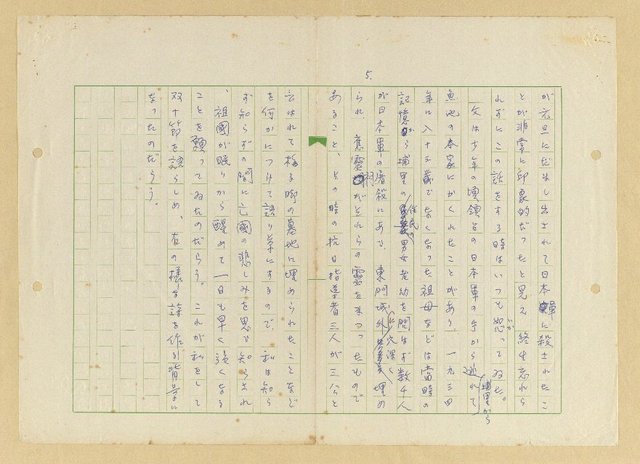 5.
が元旦にだまし出されて日本軍に殺されたこ
とが非常に印象的だったと見え 終生忘れら
れずにこの話をする時はいつも怒ってゐた。
父は少年の頃鎮台の日本軍の手から逃れて埔里から
魚池の本家にかくれたことがあり、一九三四
年に八十五歳でなくなった祖母などは当時の
記憶から埔里の住民の男女老幼を問はず数千人
が日本軍の屠殺にあひ 東門城外に穴深く埋め
られ 祠がそれらの霊をまつったもので
あること、その時の抗日指導者三人が三公と
云はれて 墓地に埋められたことなど
を何かにつけて語り草にするので、私は知ら
ず知らずの間に亡國の悲しみを思ひ知らされ
、祖國が眠りから醒めて一日も早く強くなる
ことを願ってゐたのだらう。これが私をして
双十節を讃へしめ、右の様な詩を作る背景に
なったのだらう。